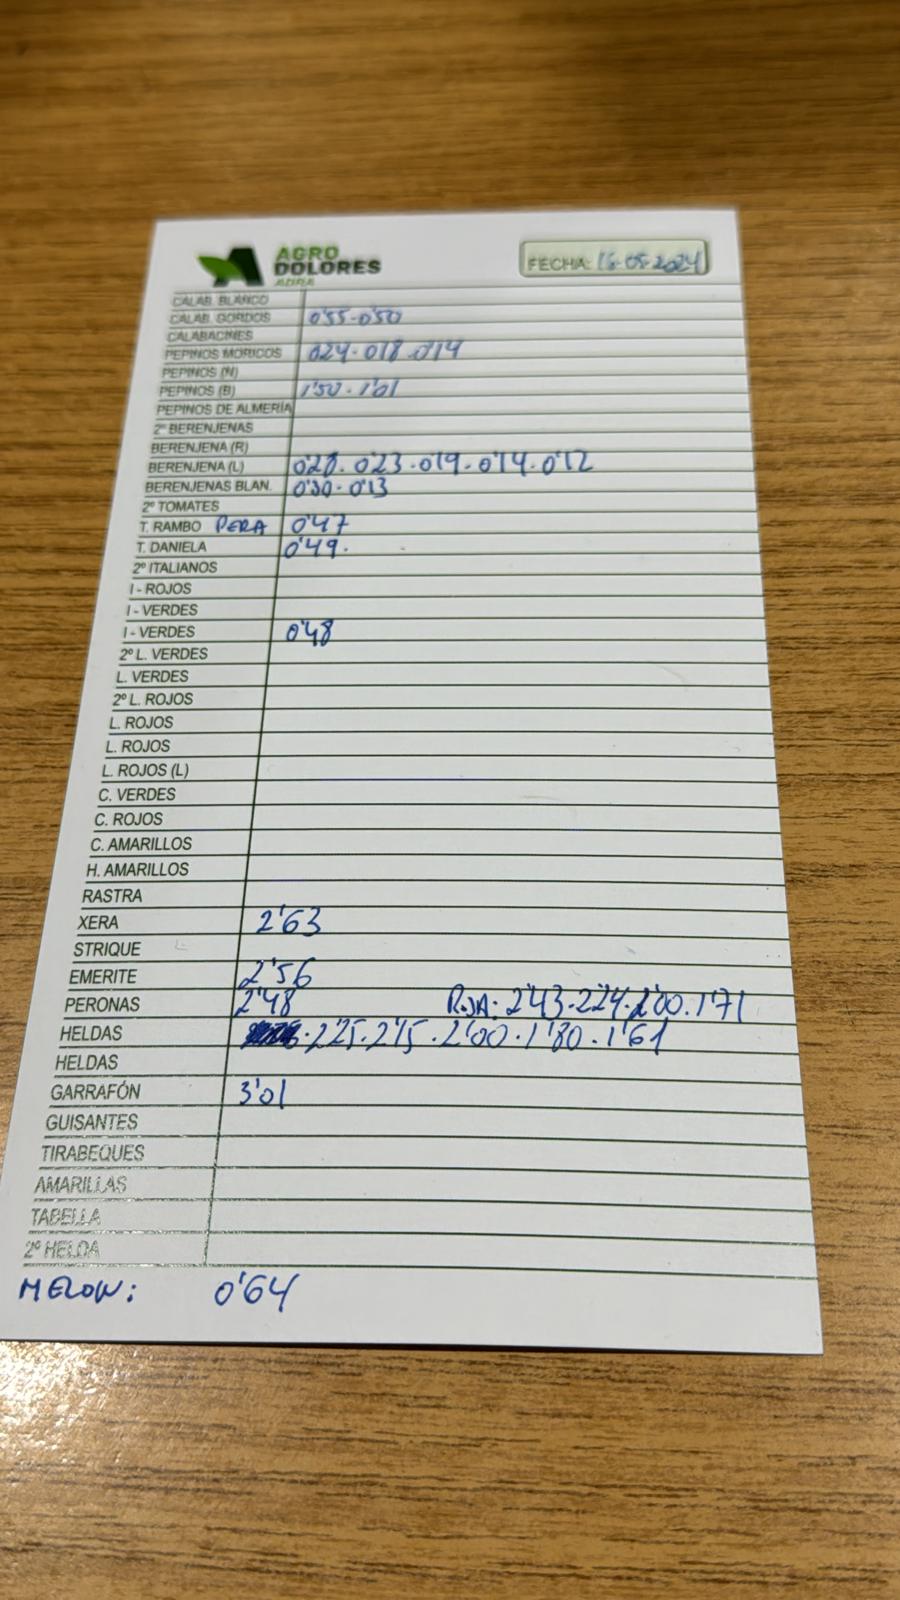 AGRO
DOLORES
ADRA
FECHA: 16-05-2024
CALAB. BLANCO
CALAB. GORDOS 0'55-0'50
CALABACINES
PEPINOS MORICOS 0'24-0'18-0'14
PEPINOS (N)
PEPINOS (B) 1'50-1'01
PEPINOS DE ALMERÍA
2º BERENJENAS
BERENJENA (R)
BERENJENA (L) 0'28-0'23-0'19-0'14-0'12
BERENJENAS BLAN. 0'30-0'13
2º TOMATES
T. RAMBO PERA 0'47
T. DANIELA 0'49.
2º ITALIANOS
I - ROJOS
I - VERDES
I - VERDES 0'48
2º L. VERDES
L. VERDES
2º L. ROJOS
L. ROJOS
L. ROJOS
L. ROJOS (L)
C. VERDES
C. ROJOS
C. AMARILLOS
H. AMARILLOS
RASTRA
XERA 2'63
STRIQUE
EMERITE 2'56
PERONAS 2'48 ROJA: 2'43-2'24-2'00-1'71
HELDAS 2'25-2'15-2'00-1'80-1'61
HELDAS
GARRAFÓN 3'01
GUISANTES
TIRABEQUES
AMARILLAS
TABELLA
2º HELDA
MELON: 0'64